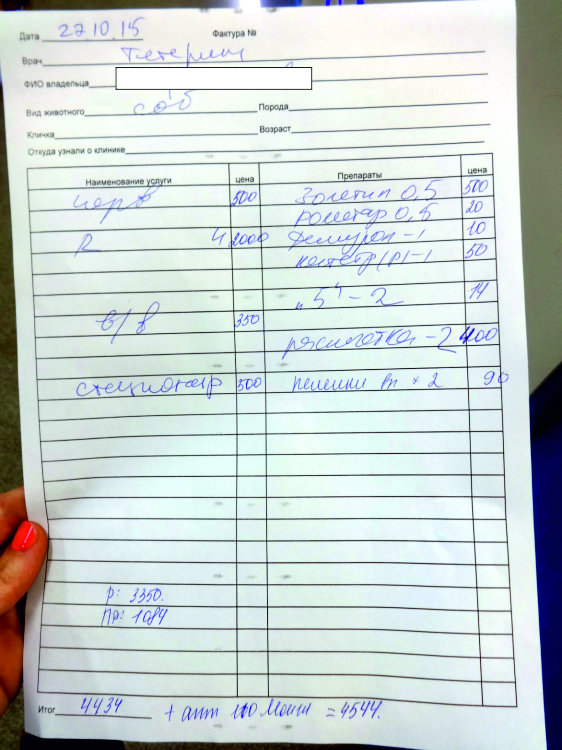 Дата 27.10.15 Фактура №
Врач
ФИО владельца
Вид животного соб Порода
Кличка Возраст
Откуда узнали о клинике
Наименование услуги цена Препараты цена
500 Золетил 0,5 500
Рометар 0,5 20
R 4 2000 -1 10
-1 50
"5" - 2 14
в/в 350
-2 400
стационар 500 пеленки m × 2 90
р: 3350.
Пр: 1084
Итог 4434 + = 4544.